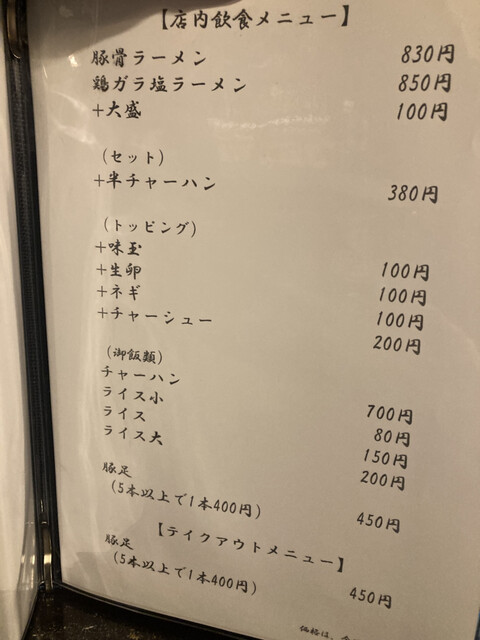 【店内飲食メニュー】
豚骨ラーメン 830円
鶏ガラ塩ラーメン 850円
+大盛 100円
(セット)
+半チャーハン 380円
(トッピング)
+味玉 100円
+生卵 100円
+ネギ 100円
+チャーシュー 200円
(御飯類)
チャーハン 700円
ライス小 80円
ライス 150円
ライス大 200円
豚足 450円
(5本以上で1本400円)
【テイクアウトメニュー】
豚足 450円
(5本以上で1本400円)
価格は、